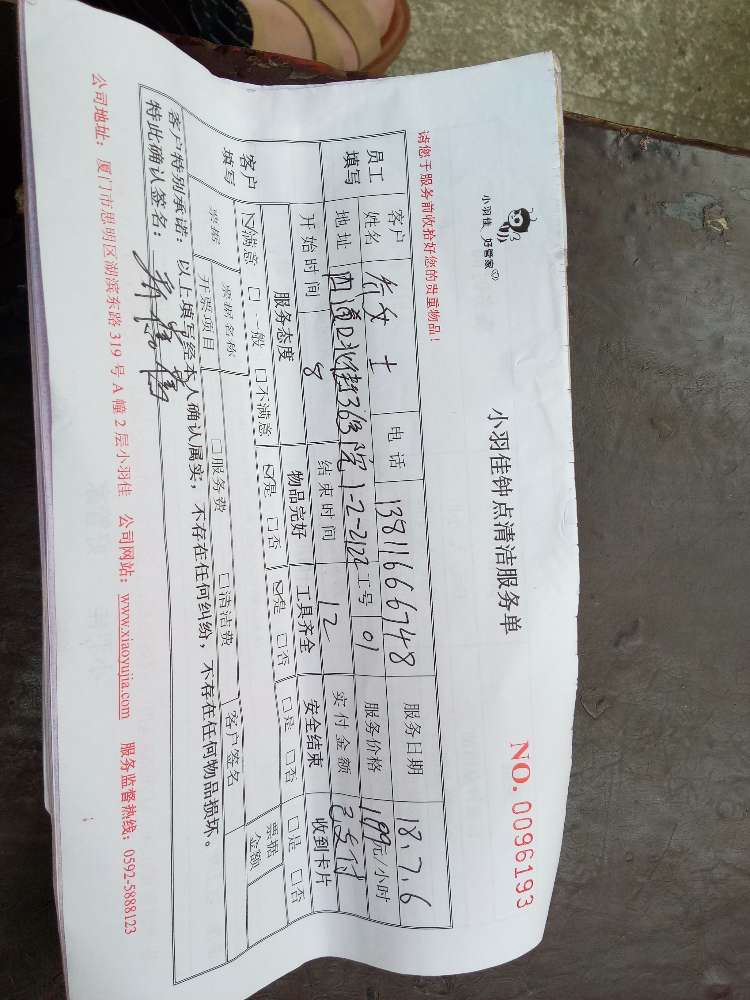 小羽佳 好管家
小羽佳钟点清洁服务单
NO. 0096193
请您于服务前收拾好您的贵重物品！
员工填写 客户姓名 女士 电话 13811666748 服务日期 18.7.6
地址 1-2-2122 工号 01 服务价格 199元/小时
开始时间 8 结束时间 12 实付金额 已支付
客户填写 服务态度 物品完好 工具齐全 安全结束 收到卡片
☑满意 □一般 □不满意 ☑是 □否 ☑是 □否 □是 □否 □是 □否
票据 票据名称 客户签名 票据金额
开票项目 □服务费 □清洁费
客户特别承诺：以上填写经本人确认属实，不存在任何纠纷，不存在任何物品损坏。
特此确认签名：
公司地址：厦门市思明区湖滨东路319号A幢2层小羽佳 公司网站：www.xiaoyujia.com 服务监督热线：0592-5888123